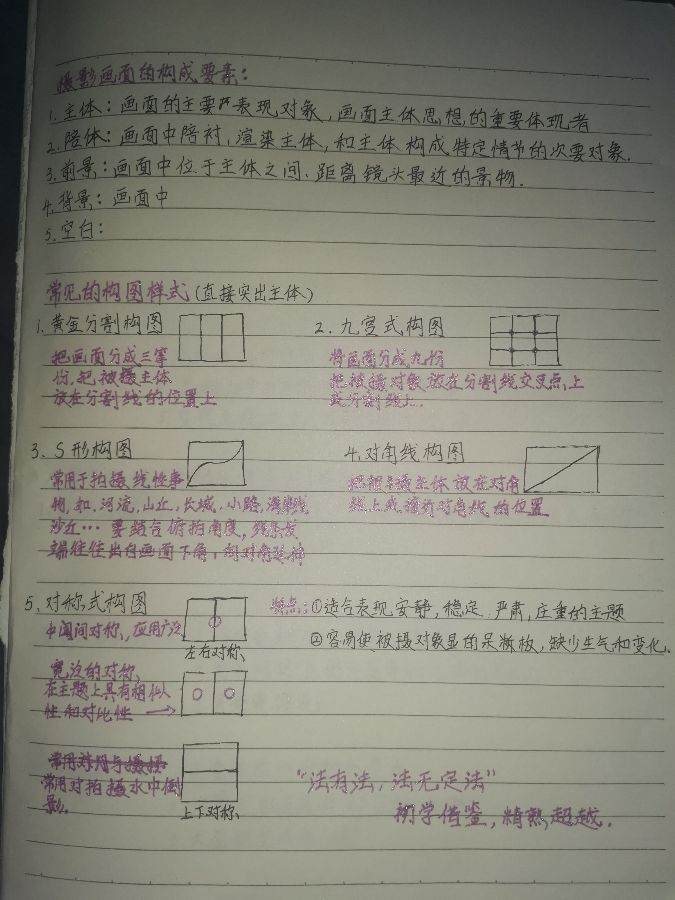 摄影画面的构成要素：
1.主体：画面的主要表现对象，画面主体思想的重要体现者
2.陪体：画面中陪衬，渲染主体，和主体构成特定情节的次要对象.
3.前景：画面中位于主体之间.距离镜头最近的景物.
4.背景：画面中
5.空白：
常见的构图样式(直接突出主体)
1.黄金分割构图
把画面分成三等
份,把被摄主体
放在分割线的位置上
2.九宫式构图
将画面分成九份
把被摄对象放在分割线交叉点,上
或分割线上.
3.S形构图
常用于拍摄线性事
物,如.河流,山丘,长城,小路,海岸线
沙丘…要结合俯拍角度,线条发
端往往出自画面下角,向对角延伸
4.对角线构图
把被摄主体放在对角
线上或接近对角线的位置
5.对称式构图
中间对称、应用广泛
左右对称、
特点：①适合表现安静,稳定 严肃,庄重的主题
②容易使被摄对象显的呆板,缺少生气和变化.
宽泛的对称、
在主题上具有相似
性和对比性
常用对拍摄水中倒
影.
上下对称、
“法有法,法无定法”
初学借鉴,精熟超越.